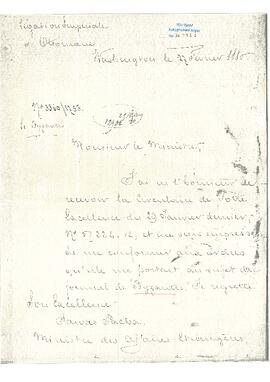 Légation Impériale
Ottomane
Washington le 27 Février 1880
Nº 3340/1253
le Byzandt
Monsieur le Ministre,
J'ai eu l'honneur de
recevoir la circulaire de Votre
Excellence du 29 Janvier dernier,
Nº 57226.12, et me suis empressé
de me conformer aux ordres
qu'elle me portait au sujet du
journal de Byzandt. Je regrette
Son Excellence
Sawas Pacha
Ministre des Affaires Etrangères